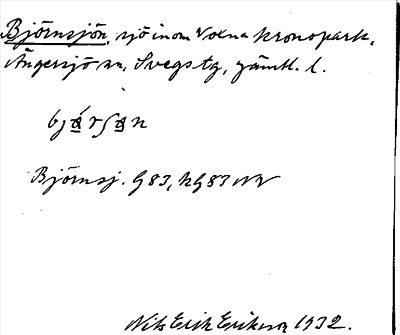 Björnsjön, sjö inom Voxna kronopark,
Ängersjö sn, Svegs tg, Jämtl. l.
Björnsj. G 83, hG 83 NV
Nils Erik Eriksson 1932.